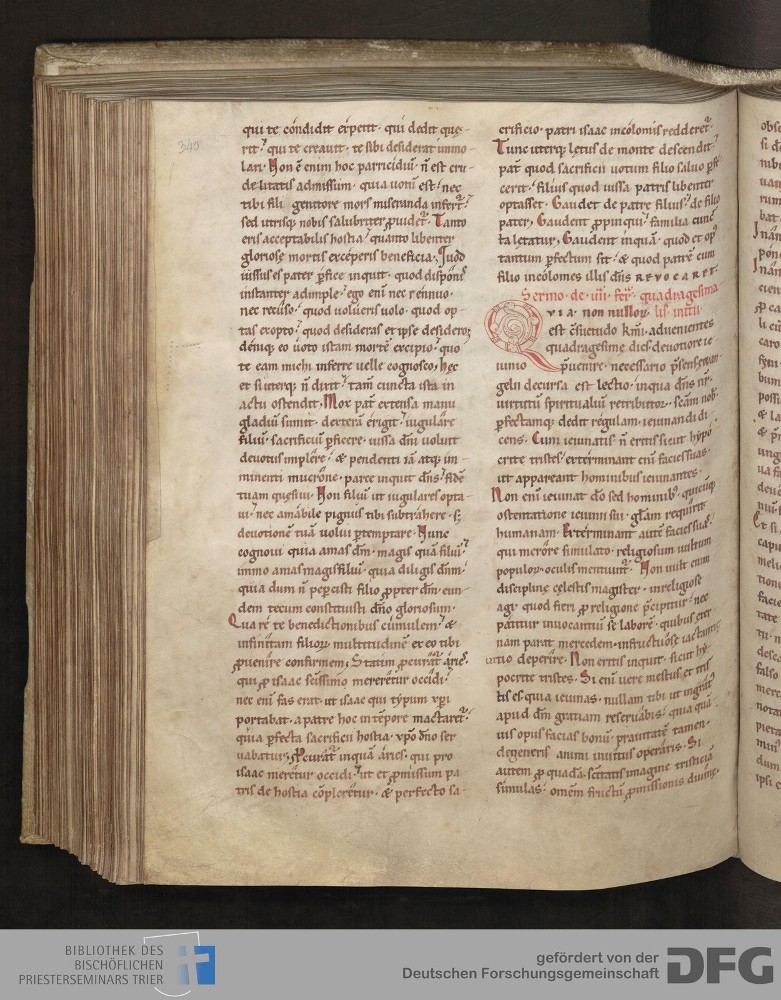 340
qui te condidit expetit · qui dedit quę-
rit · qui te creavit · te sibi desiderat immo
lari · Non ē enim hoc parricidiū · n̄ est cru-
delitatis admissum · quia uotū est · nec
tibi fili genitore mors miseranda infert᷑ ·
sed utrisq; nobis salubriter ꝓuidet᷑ · Tanto
eris acceptabilis hostia · quanto libenter
gloriosę mortis exceperis beneficia · Quod
iussus es pater ꝑfice inquit · quod disponis
instanter adimple · ego eni nec rennuo ·
nec recuso · quod volueris uolo · quod op-
tas exopto · quod desideras et ipse desidero ;
deniq; eo uoto istam mortē excipio · quo
te eam michi inferre uelle cognosco · hęc
et si uterq; n̄ dixit · tam̄ cuncta ista in
actu ostendit · Mox pat᷑ extensa manu
gladiū sumit · dexterā erigit · iugulare
filiū · sacrificiū ꝑficere · iussa dn̄i uoluit
deuotus implere · & pendenti iā atq; im-
minenti mucrone · parce inquit dn̄s · fidē
tuam quęsiui · Non filiū ut iugulares opta-
ui · nec amabile pignus tibi subtrahere · s;
deuotionē tuā uolui ꝑtemptare · Nunc
cognoui quia amas dm̄ · magis quā filiū ·
immo amas magis filiū · quia diligis dn̄m ·
quia dum n̄ pepcisti filio ꝓpter dm̄ · eun-
dem tecum constituisti dn̄o gloriosum ·
Qua re te benedictionibus cumulem · &
infinitam filioꝝ multitudinē ex eo tibi
ꝓuenire confirmem , Statim ꝓcurat᷑ ariēs ·
qui ꝓ isaac sc̄issimo mereretur occidi ·
nec eni fas erat · ut isaac qui typum xp̄i
portabat · a patre hoc in tēpore mactaret᷑ ·
quia ꝑfecta sacrificii hostia · xp̄o dn̄o ser
uabatur ; Procurat᷑ inquā aries · qui pro
isaac meretur occidi · ut et ꝓmissum pa
tris de hostia cōpleretur · & perfecto sa-
crificio · patri isaac incolomis redderet᷑ ·
Tunc uterq; lętus de monte descendit ·
pat᷑ quod sacrificii uotum filio saluo ꝑfe
cerit · filius quod iussa patris libenter
optasset · Gaudet de patre filius · de filio
pater , Gaudent ꝓpinqui · familia cunc
ta lętatur , Gaudent inquā · quod et op᷒
tantum ꝑfectum sit · & quod patrē cum
filio incolomes illis dn̄s REVOCARET ·
Sermo · de · iiii · feria · quadragesima
QVIA · non nulloꝝ · lis initii ·
est cōsuetudo kmī · aduenientes
quadragesimę dies deuotiore ie-
iunio p̄uenire · necessario p̄sens euan
gelii decursa est lectio · in qua dn̄s nr̄ ·
uirtutū spiritualiū retributor · sc̄am nob᷒
ꝑfectamq; dedit regulam · ieiunandi di
cens · Cum ieiunatis · n̄ eritis sicut hypo
critę tristes · exterminant eni facies suas ·
ut appareant hominibus ieiunantes ·
Non eni ieiunat dō sed hominib᷒ · quicūq;
ostentatione ieiunii sui · glām requirit
humanam · Exterminant autē facies suas ·
qui merore simulato · religiosum uultum
populoꝝ · oculis mentiunt᷑ · Non uult enim
disciplinę cęlestis magister · inreligiose
agi quod fieri ꝓ religione p̄cipitur · nec
patitur inuocantiū se laborē · quibus ęter
nam parat mercedem · infructuose iactanti
uitio deperire · Non eritis inquit · sicut hy-
pocritę tristes · Si eni uere mestus et tris
tis es quia ieiunas · nullam tibi ut ingrat᷒
apud dm̄ gratiam reseruabis · quia quā
uis opus facias bonū · prauitatē tamen ·
degeneris animi inuitus operaris · Si
autem ꝓ quadā · sc̄itatis imagine tristiciā
simulas · omēm fructū ꝓmissionis diuinę ·
BIBLIOTHEK DES
BISCHÖFLICHEN
PRIESTERSEMINARS TRIER
gefördert von der
Deutschen Forschungsgemeinschaft
DFG